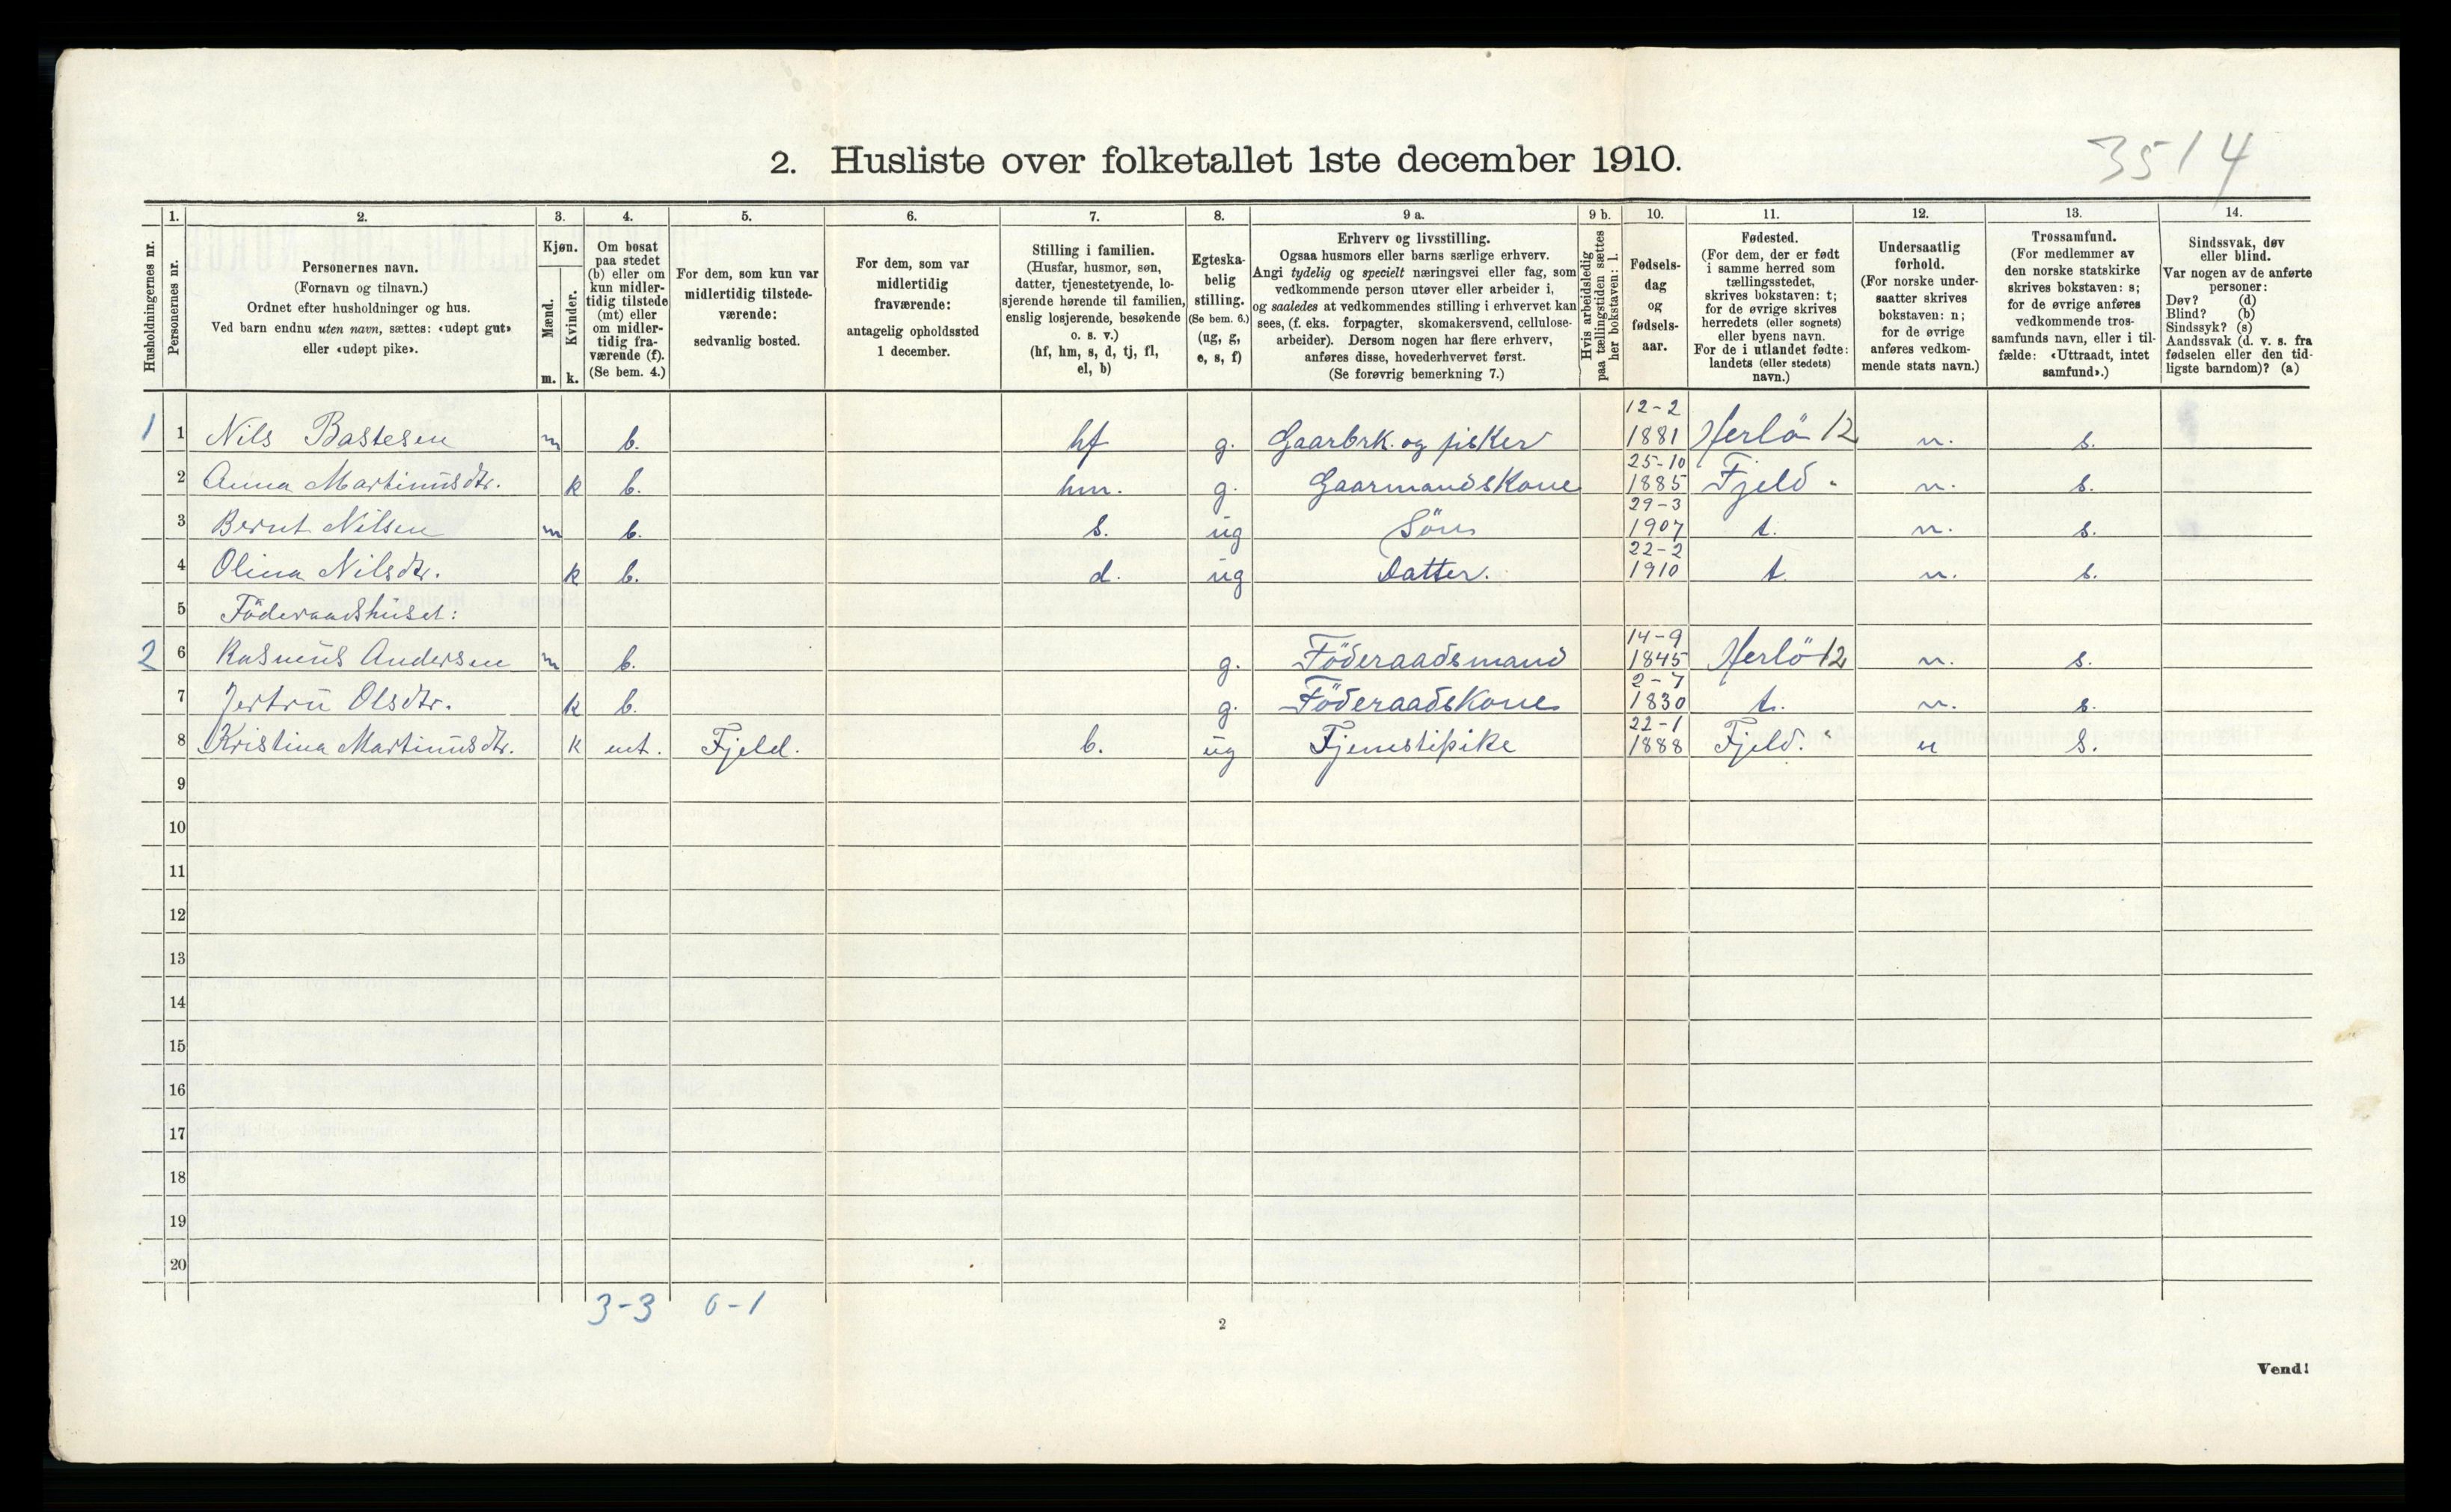 3514
2. Husliste over folketallet 1ste december 1910.
Husholdningernes nr.
1.
Personernes nr.
2.
Personernes navn.
(Fornavn og tilnavn.)
Ordnet efter husholdninger og hus.
Ved barn endnu uten navn, sættes: «udøpt gut»
eller «udøpt pike».
3.
Kjøn.
Mænd.
Kvinder.
m. k.
4.
Om bosat
paa stedet
(b) eller om
kun midler-
tidig tilstede
(mt) eller
om midler-
tidig fra-
værende (f).
(Se bem. 4.)
5.
For dem, som kun var
midlertidig tilstede-
værende:
sedvanlig bosted.
6.
For dem, som var
midlertidig
fraværende:
antagelig opholdssted
1 december.
7.
Stilling i familien.
(Husfar, husmor, søn,
datter, tjenestetyende, lo-
sjerende hørende til familien,
enslig losjerende, besøkende
o. s. v.)
(hf, hm, s, d, tj, fl,
el, b)
8.
Egteska-
belig
stilling.
(Se bem. 6.)
(ug, g,
e, s, f)
9 a.
Erhverv og livsstilling.
Ogsaa husmors eller barns særlige erhverv.
Angi tydelig og specielt næringsvei eller fag, som
vedkommende person utøver eller arbeider i,
og saaledes at vedkommendes stilling i erhvervet kan
sees, (f. eks. forpagter, skomakersvend, cellulose-
arbeider). Dersom nogen har flere erhverv,
anføres disse, hovederhvervet først.
(Se forøvrig bemerkning 7.)
9 b.
Hvis arbeidsledig
paa tællingstiden sættes
her bokstaven: l.
10.
Fødsels-
dag
og
fødsels-
aar.
11.
Fødested.
(For dem, der er født
i samme herred som
tællingsstedet,
skrives bokstaven: t;
for de øvrige skrives
herredets (eller sognets)
eller byens navn.
For de i utlandet fødte:
landets (eller stedets)
navn.)
12.
Undersaatlig
forhold.
(For norske under-
saatter skrives
bokstaven: n;
for de øvrige
anføres vedkom-
mende stats navn.)
13.
Trossamfund.
(For medlemmer av
den norske statskirke
skrives bokstaven: s;
for de øvrige anføres
vedkommende tros-
samfunds navn, eller i til-
fælde: «Uttraadt, intet
samfund».)
14.
Sindssvak, døv
eller blind.
Var nogen av de anførte
personer:
Døv? (d)
Blind? (b)
Sindssyk? (s)
Aandssvak (d. v. s. fra
fødselen eller den tid-
ligste barndom)? (a)
1 1 Nils Bastesen m b. hf g. Gaarbrk. og fisker 12-2 1881 Herlö 12 n. s.
2 Anna Martinusdtr. k b. hm. g. Gaarmandskone 25-10 1885 Fjeld " n. s.
3 Bernt Nilsen m b. s. ug Sön 29-3 1907 t. n. s.
4 Olina Nilsdtr. k b. d. ug Datter. 22-2 1910 t n. s.
5 Föderaadshuset:
2 6 Rasmus Andersen m b. g. Föderaadsmand 14-9 1845 Herlö 12 n. s.
7 Jertru Olsdtr. k b. g. Föderaadskone 2-7 1830 t. n. s.
8 Kristina Martinusdtr. k mt. Fjeld. b. ug Tjenestipike 22-1 1888 Fjeld. " n S.
9
10
11
12
13
14
15
16
17
18
19
20
3-3 0-1
2
Vend!